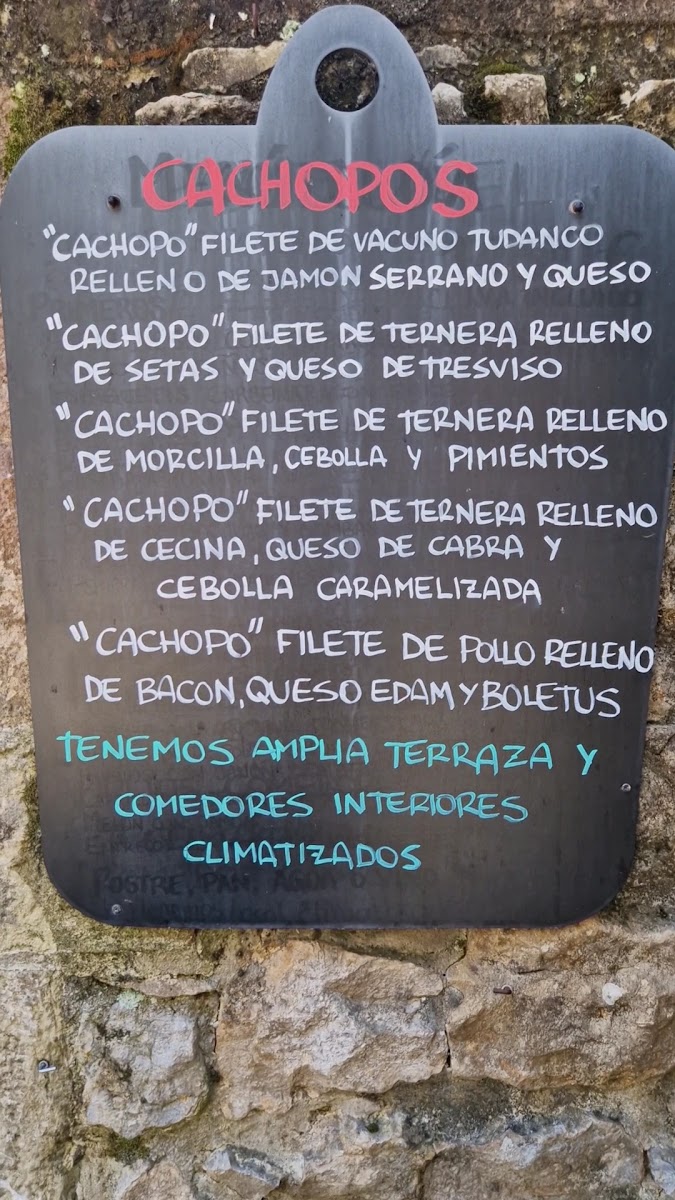 CACHOPOS
"CACHOPO" FILETE DE VACUNO TUDANCO
RELLENO DE JAMON SERRANO Y QUESO
"CACHOPO" FILETE DE TERNERA RELLENO
DE SETAS Y QUESO DE TRESVISO
"CACHOPO" FILETE DE TERNERA RELLENO
DE MORCILLA, CEBOLLA Y PIMIENTOS
"CACHOPO" FILETE DE TERNERA RELLENO
DE CECINA, QUESO DE CABRA Y
CEBOLLA CARAMELIZADA
"CACHOPO" FILETE DE POLLO RELLENO
DE BACON, QUESO EDAM Y BOLETUS
TENEMOS AMPLIA TERRAZA Y
COMEDORES INTERIORES
CLIMATIZADOS
POSTRE, PAN, AGUA